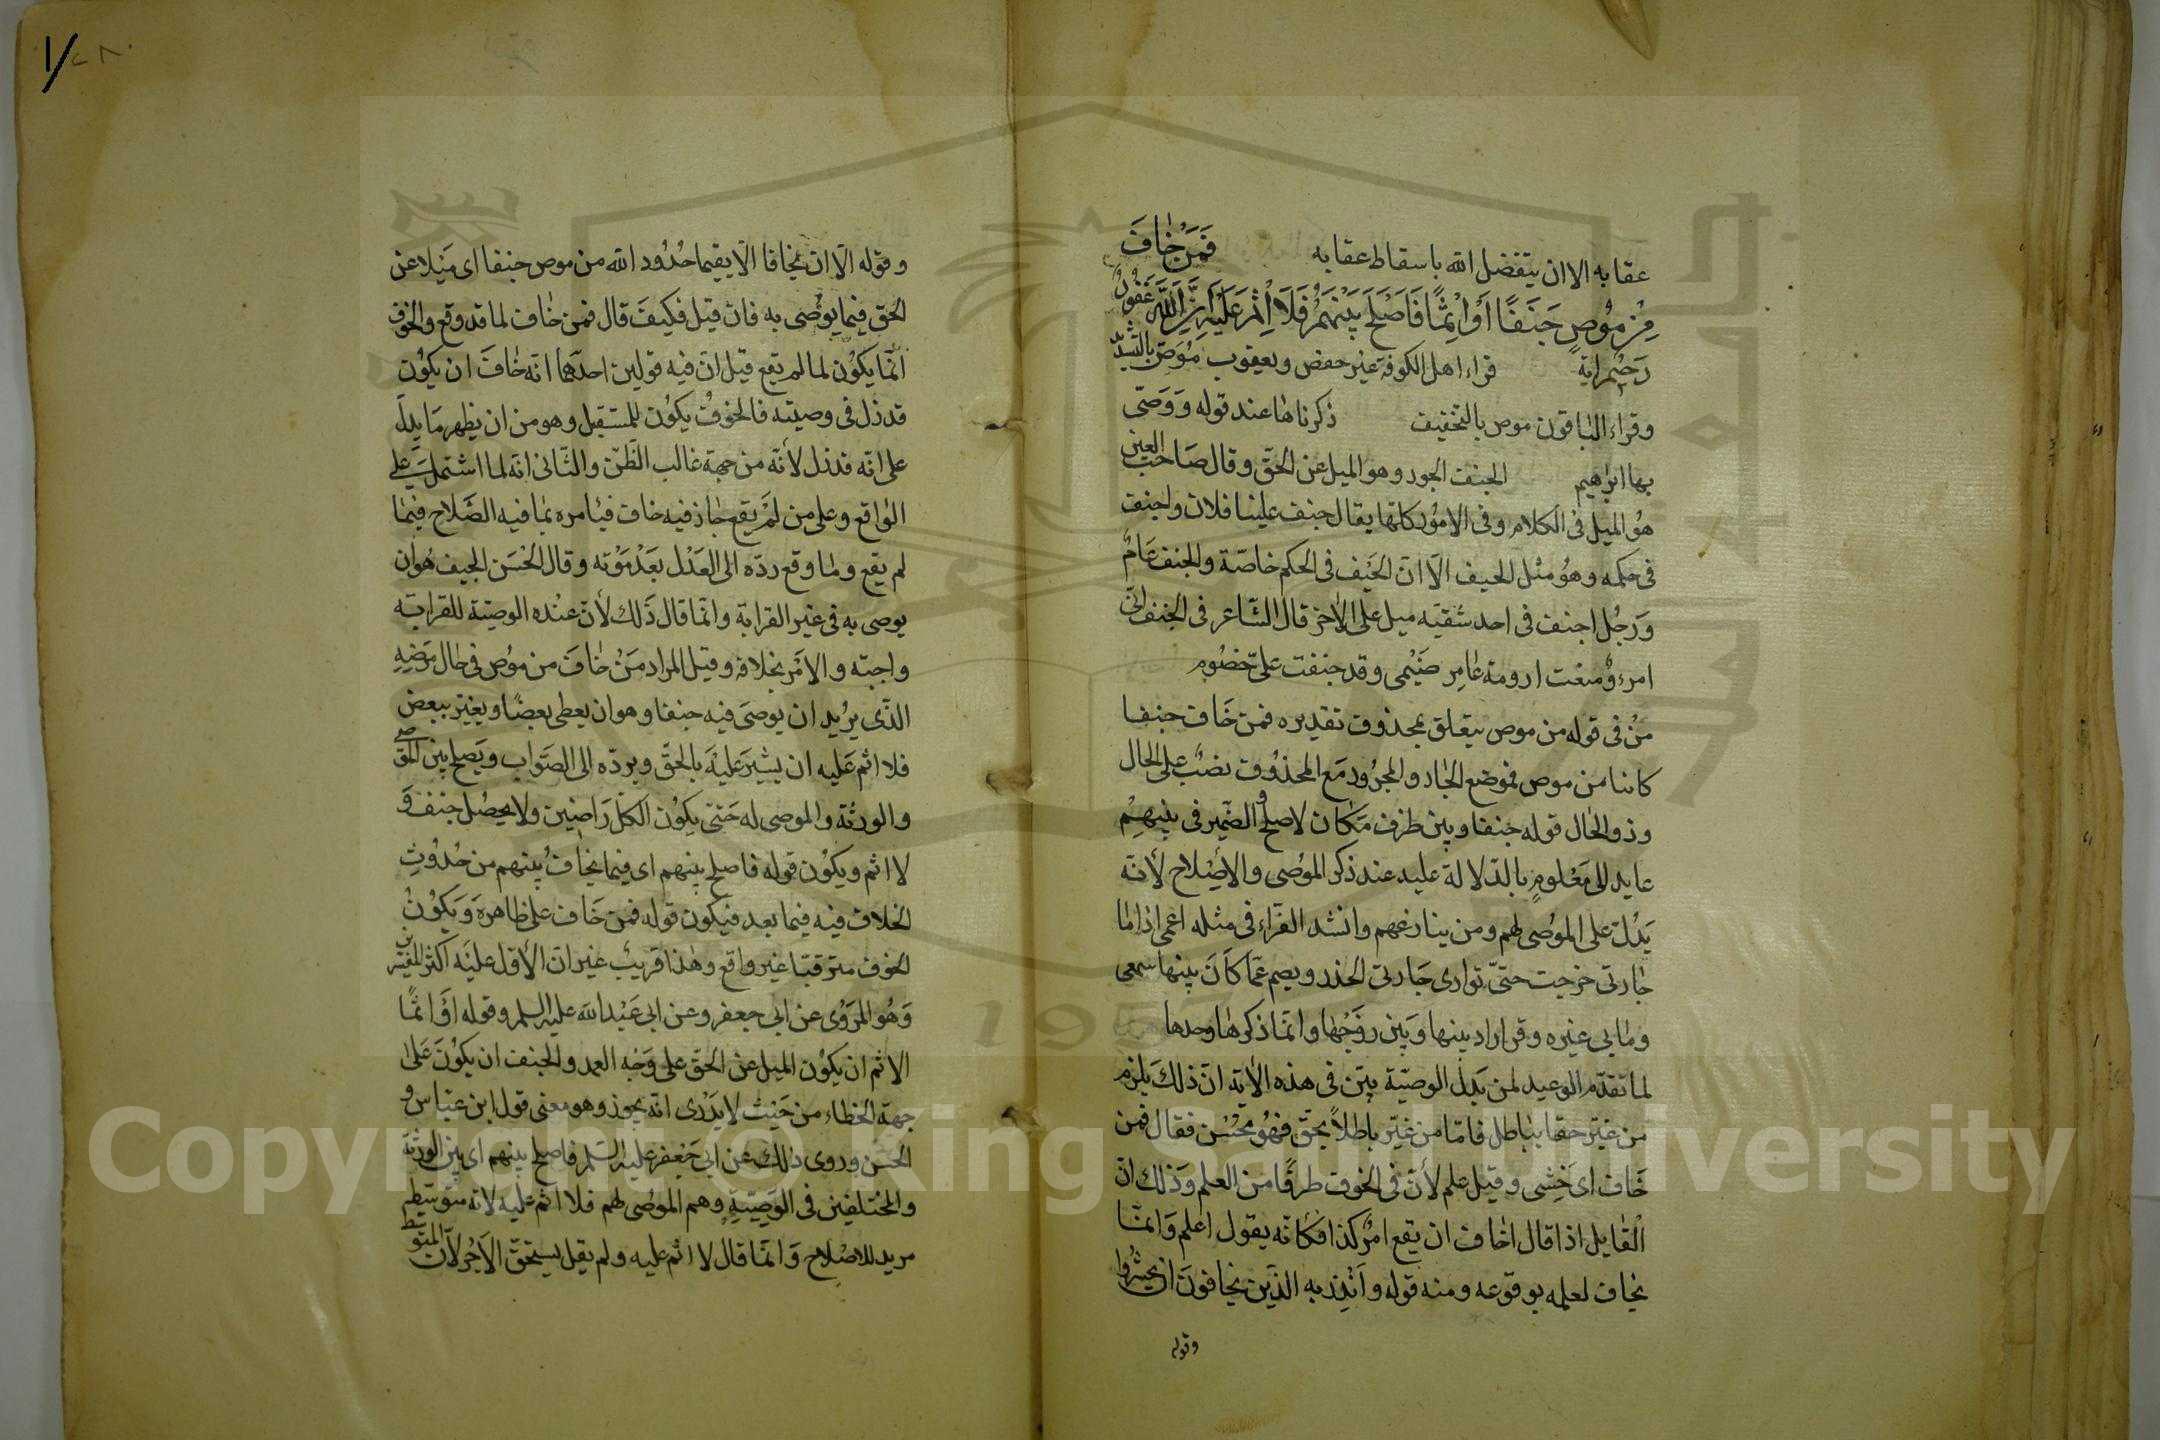 عقابه الا ان يتفضل الله باسقاط عقابه فَمَنْ خافَ
مِنْ مُوصٍ جَنَفًا اَوْ اِثْمًا فَاَصْلَحَ بَيْنَهُمْ فَلَا اِثْمَ عَلَيْهِ اِنَّ اللّٰهَ غَفُورٌ
رَحيمٌ اية قراء اهل الكوفة غير حفص ويعقوب مُوَصّ بالتشديد
وقراء الباقون موص بالتخفيف ذكرناها عند قوله وَوَصّى
بها ابرهيم الجنف الجور وهو الميل عن الحقّ وقال صَاحب العين
هُو الميل فى الكلام وفى الامُور كلّها يقال جنف علينا فلان واجنف
فى حكمه وهُو مثل الحيف الّا انّ الحَيف فى الحكم خاصّة والجنف عَامٌّ
وَرَجُل اجنف فى احد شقيّه ميل على الاخر قال الشّاعر فى الجنف انّى
امرء مُنعت ارومة عامِر ضَيْمى وقد جنفت علىّ خصُوم
مِنْ فى قوله من موص يتعلق بمحذوف تقديره فمن خَاف جنفا
كائنا من موص فموضع الجار والمجرُور مَع المحذوُف نصبٌ على الحال
وذو الحال قوله جنفا وبين ظرف مَكان لاصلح والضّمير فى بينهِمُ
عايد الى مَعْلومٍ بالدّلالة عليه عند ذكر الموُصى والاصْلاح لأنّه
يَدُلّ على الموُصى لهم ومن ينازعهم وانشد الفرّاء فى مثله اعمى اذا ما
جارتى خرجت حتىّ توارى جَارتى الخدر ويصم عمّا كَانَ بينها سمعى
وما بى غيره وقر اراد بينها وَبَين زوَجْها وانّما ذكرها وحدها
لما تقدّم الوعيد لمن بَدلّ الوصيّة بيّن فى هذه الاية انّ ذلكَ يلزم
من غيّر حقا بباطل فامّا من غيّر باطلاً بحَقّ فهُو محْسُن فقال فمن
خَاف اى خَشِى وقيل علم لأنّ فى الخوف طرفًا من العلم وَذلك انّ
الْقايل اذا قال اخاف ان يقع امرٌ كذا فكانّه يقول اعلم وَانمّا
يخاف لعلمه بوقوعه ومنه قوله وانْذِر به الّذين يخافونَ ان يحشُروا
وقوله
وقوله الّا ان يخافا الّا يقيما حُدُود الله من موص جنفا اى مَيْلا عن
الحق فيما يوُصى به فان قيل فكيفَ قال فمن خاف لما قد وقع والخوف
انّما يكوُن لما لم يقع قيل انّ فيه قولين احدهما انّه خافَ ان يكوُن
قد زل فى وصيته فالخوفُ يكوُن للمستقبل وهو من ان يظهر مَا يدلّ
على انّه قد زل لأنّه من جهة غالب الظّنّ والثّانى انّه لما اشتمل على
الواقع وعلى من لَمْ يقع جاز فيه خاف فيأمره بما فيه الصَّلاح فيما
لم يقع وما وقع ردّه الى العَدْل بعَدْ مَوْته وقال الحَسَن الجيف هُو ان
يوصى به فى غير القرابة وانّما قال ذَلك لأنّ عنده الوصيّة للقرابة
واجبة والامَر بخلافه وقيل المراد مَنْ خافَ من موُص فى حال مَرَضِهِ
الّذى يُريد ان يوصَى فيه جنفا وهو ان يعطى بعضًا ويغيّر ببعض
فلا اثم عَليه ان يشيرَ عَليْهَ بالحقّ ويردّه الى الصَّواب ويَصلح بين المُوصى
والورثة والموصى له حَتىّ يكوُن الكلّ رَاضين ولا يحصُل جنف وَ
لا اثم ويكوُن قوله فاصلح بينهم اى فيما يخافُ بينهم من حُدوُثِ
الخلاف فيه فيما بعد فيكون قوله فمن خَاف على ظاهره وَيَكوُنُ
الخوف مترقبّا غير واقع وهذا قريبٌ غير انّ الأوّل عليَه اكثر المفسّرين
وَهُو المَروْى عن ابى جعفر وعن ابى عَبْد الله عليه السلم وقوله اَوْ اثمًا
الاثم ان يكوُن الميل عن الحَقّ على وَجْه العمد والجنف ان يكوُنَ عَلى
جهة الخطاء من حَيث لا يَدْرى انّه يجوز وهو معنى قول ابن عبّاس و
الحسن وروى ذلك عن ابى جَعْفر عليه السّلم فاصلح بينهم اى بين الورثة
والمختلفين فى الوَصِيّةِ وهم الموُصى لهم فلا اثم عليه لانّه متوسّط
مريد للاصْلاح وَانّما قال لا اثم عليه ولم يقل يستحقّ الاَجْر لأنّ المتوسّط
Copyright © King Saud University